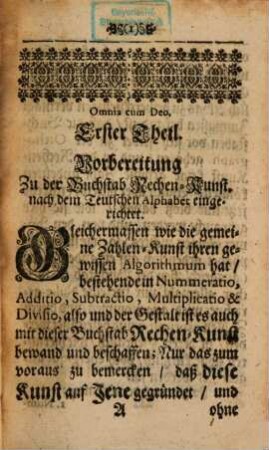 Omnia cum Deo.
Erster Theil.
Vorbereitung
Zu der Buchstab Rechen-Kunst,
nach dem Teutschen Alphabet einge-
richtet.
Gleichermassen wie die gemei-
ne Zahlen-Kunst ihren ge-
wissen Algorithmum hat /
bestehende in Nummeratio,
Additio, Subtractio, Multiplicatio &
Divisio, also und der Gestalt ist es auch
mit dieser Buchstab Rechen-Kunst
bewand und beschaffen; Nur das zum
voraus zu bemercken / daß diese
Kunst auf Jene gegründet / und
A ohne